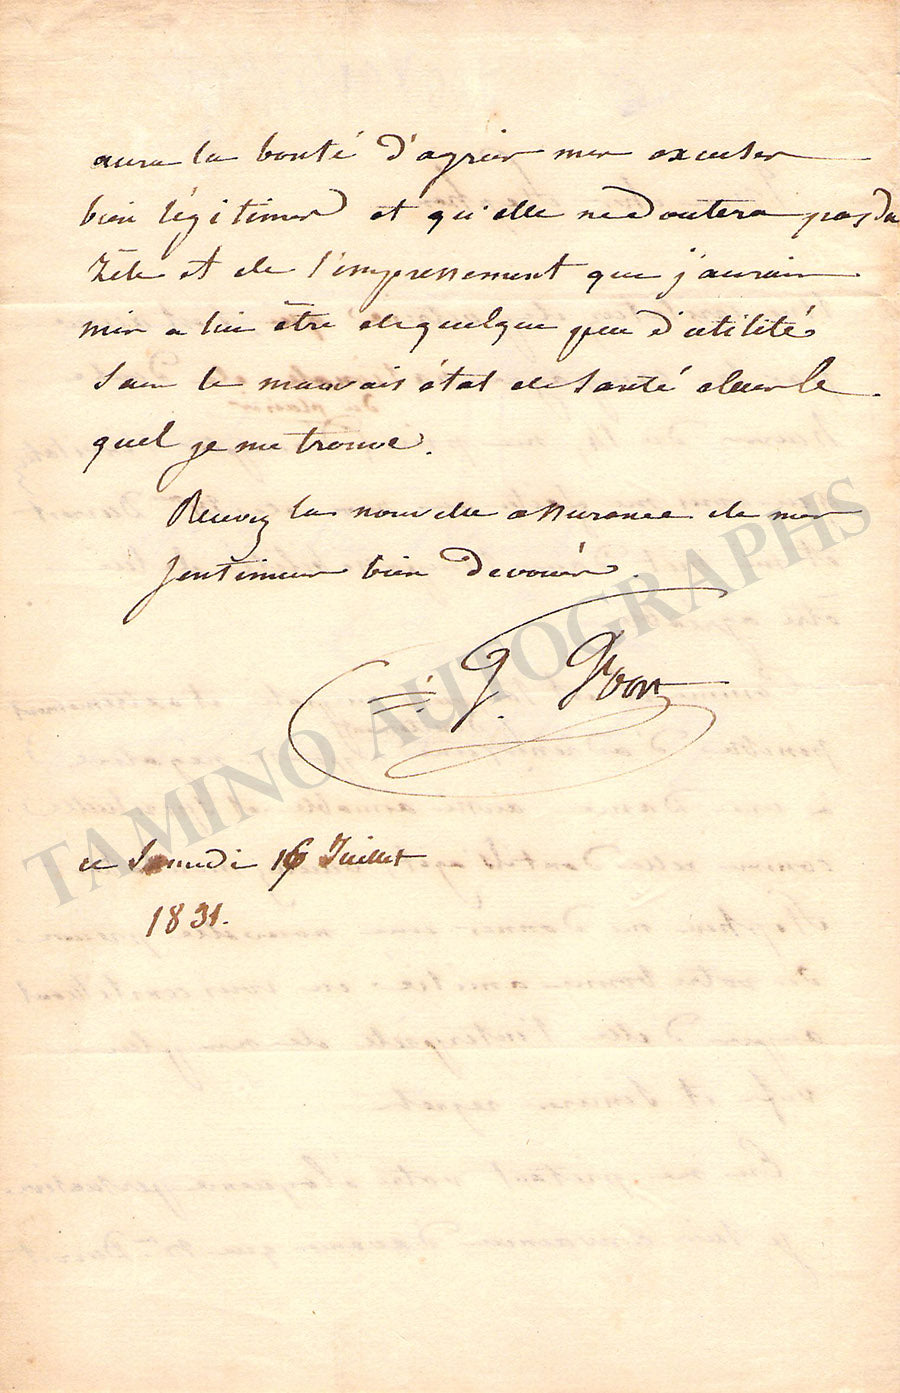 aura la bonté d'agréer mes excuses
bien légitimes et qu'elle ne doutera pas du
zèle et de l'empressement que j'aurais
mis a lui être de quelque peu d'utilité
sans le mauvais état de santé dans le
quel je me trouve.
Recevez la nouvelle assurance de mes
sentimens bien dévoués.
ce Samedi 16 Juillet
1831.
TAMINO AUTOGRAPHS